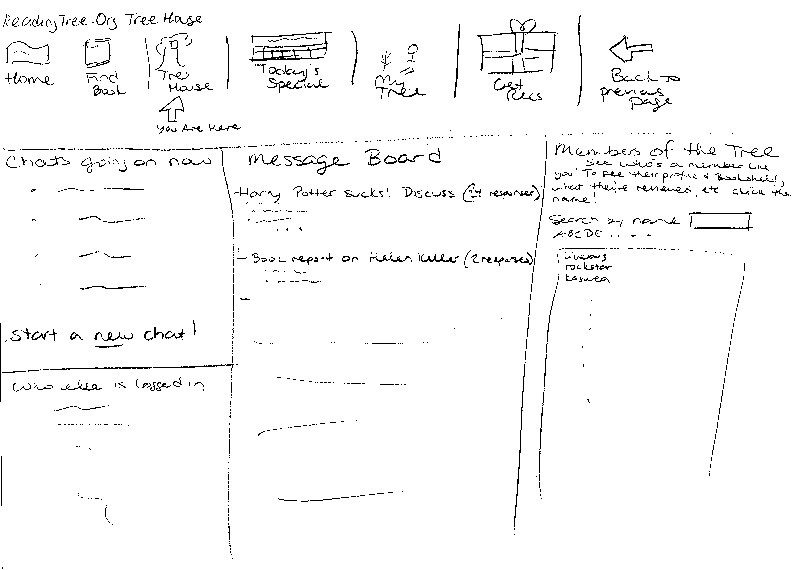 ReadingTree.Org Tree House
Home
Find
Book
Tree
House
Today's
Special
My
Tree
Get
Recs
Back to
previous
page
You Are Here
Chats going on now
Start a new chat!
Who else is logged in
Message Board
-Harry Potter sucks! Discuss ( responses)
- Book report on Helen Keller (2 responses)
Members of the Tree
See who's a member like
you! To see their profile & Bookshelf,
what they've reviewed, etc click the
name!
Search by name
ABCDE . . . .
rockstar